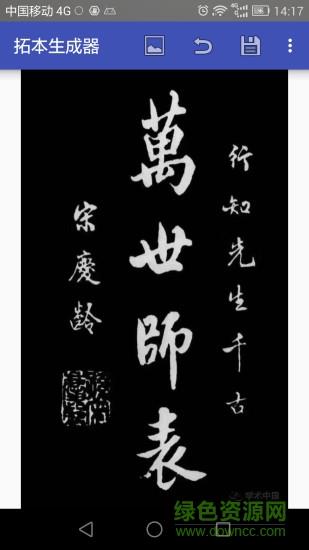 中国移动 4G 14:17
拓本生成器
行知先生千古
萬世師表
宋慶龄
学术中国
绿色资源网
www.downcc.com